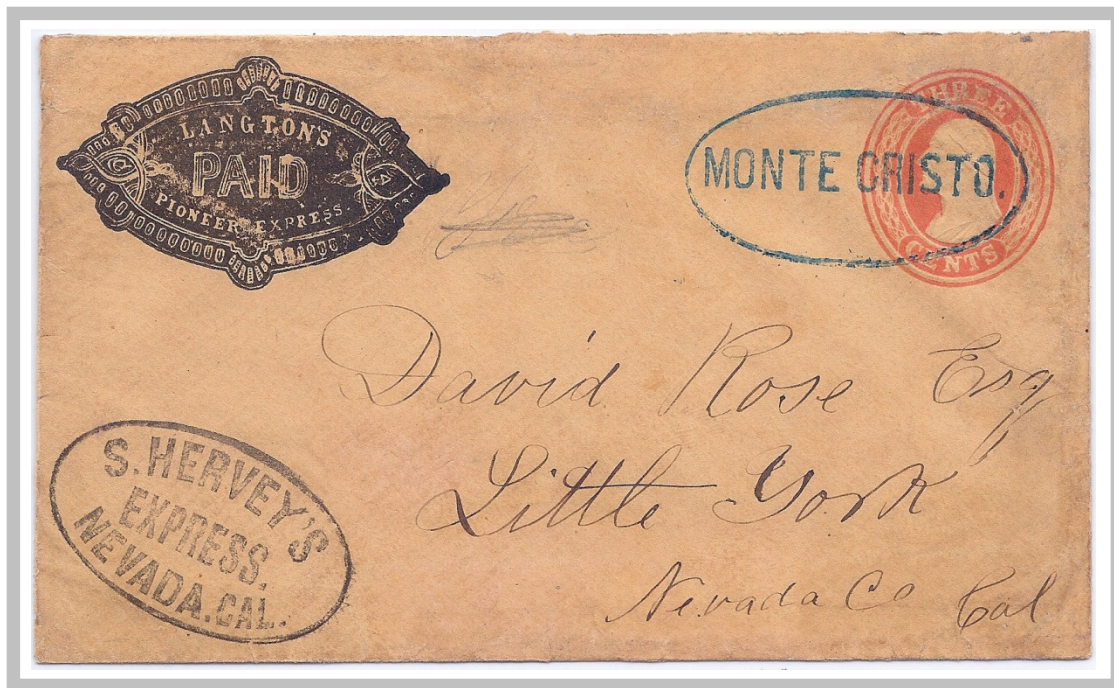 LANGTON'S
PAID
PIONEER EXPRESS.
MONTE CRISTO.
THREE
CENTS
David Rose Esq
Little York
Nevada Co Cal
S. HERVEY'S
EXPRESS.
NEVADA. CAL.